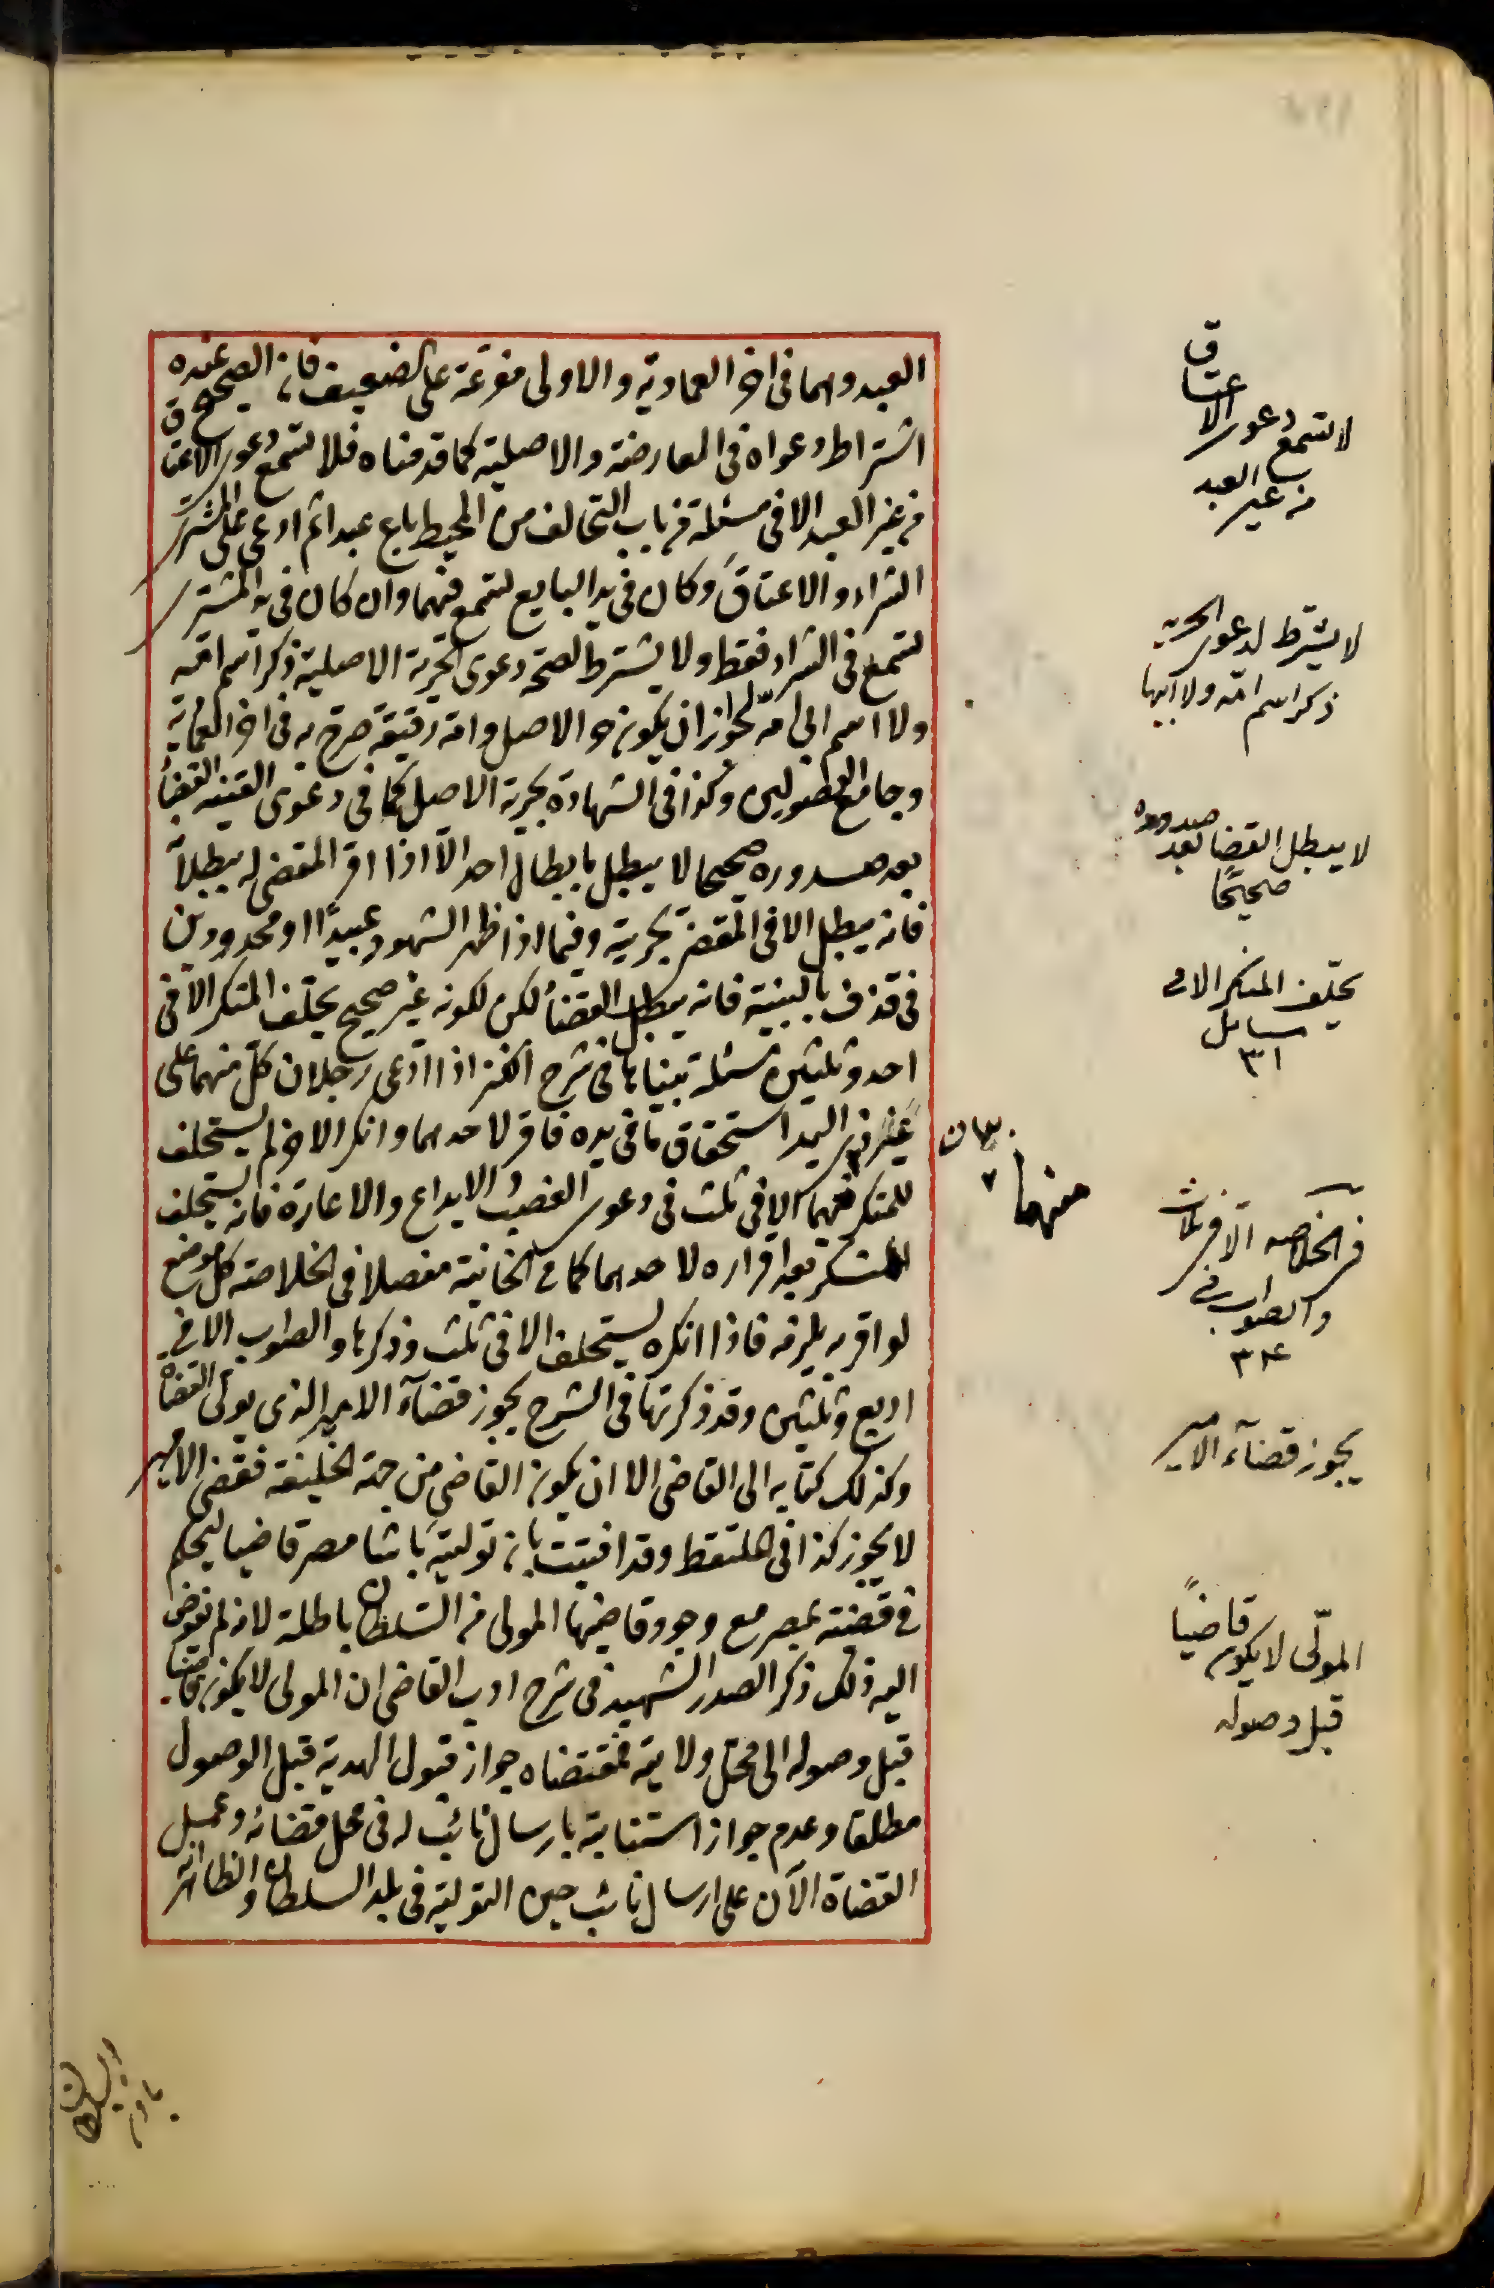 العبد وهما فى اخر العمادية والاولى مفرعة على الضعيف فان الصحيح عنده
اشتراط دعواه فى العارضة والاصلية كما قدمناه فلا تسمع دعوى الاعتاق
من غير العبد الا فى مسئلة من باب التحالف من المحيط باع عبدا ثم ادعى على المشترى
الشراء والاعتاق وكان فى يد البايع تسمع فيهما وان كان فى يد المشترى
تسمع فى الشراء فقط ولا يشترط لصحة دعوى الحرية الاصلية ذكر اسم امه
ولا اسم ابى امه لجواز ان يكون حر الاصل وامه رقيقة صرح به فى اخر العمادية
وجامع الفصولين وكذا فى الشهادة بحرية الاصل كما فى دعوى القنية القضاء
بعد صدوره صحيحا لا يبطل بابطال احد الا اذا اقر المقضى له ببطلا
فانه يبطل الا فى المقضى بحريته وفيما اذا ظهر الشهود عبيدا او محدودين
فى قذف بالبينة فانه يبطل القضاء لكن لكونه غير صحيح يحلف المنكر الا فى
احد وثلثين مسئلة بيناها فى شرح الكنز اذا ادعى رجلان كل منهما على
غير ذى اليد استحقاق ما فى يده فاقر لاحدهما وانكر الاخر لم يستحلف
للمنكر منهما الا فى ثلث فى دعوى الغصب والايداع والاعارة فانه يستحلف
للمنكر بعد اقراره لاحدهما كما فى الخانية مفصلا فى الخلاصة كل موضع
لو اقر به يلزمه فاذا انكره يستحلف الا فى ثلث وذكرها والصواب الا فى
اربع وثلثين وقد ذكرتها فى الشرح يجوز قضآء الامير الذى يولى القضاة
وكذلك كتابه الى القاضى الا ان يكون القاضى من جهة الخليفة فقضى الامير
لا يجوز كذا فى الملتقط وقد افتيت بان تولية باشا مصر قاضيا ليحكم
فى قضية بمصر مع وجود قاضيها المولى من السلطان باطلة لانه لم يفوض
اليه ذلك ذكر الصدر الشهيد فى شرح ادب القاضى ان المولى لا يكون قاضيا
قبل وصوله الى محل ولايته فمقتضاه جواز قبول الهدية قبل الوصول
مطلقا وعدم جواز استنابته بارسال نائب له فى محل قضائه وعمل
القضاة الآن على ارسال نائب حين التولية فى بلد السلطان والظاهر انه
لا تسمع دعوى الاعتاق
من غير العبد
لا يشترط لدعوى الحرية
ذكر اسم امه ولا ابيها
لا يبطل القضا بعد صدوره
صحيحًا
يحلف المنكر الا فى
مسايل
٣١
منهما
فى الخلاصه الا فى ثلاث
والصواب فى
٣٤
يجوز قضآء الامير
المولّى لا يكون قاضيًا
قبل وصوله